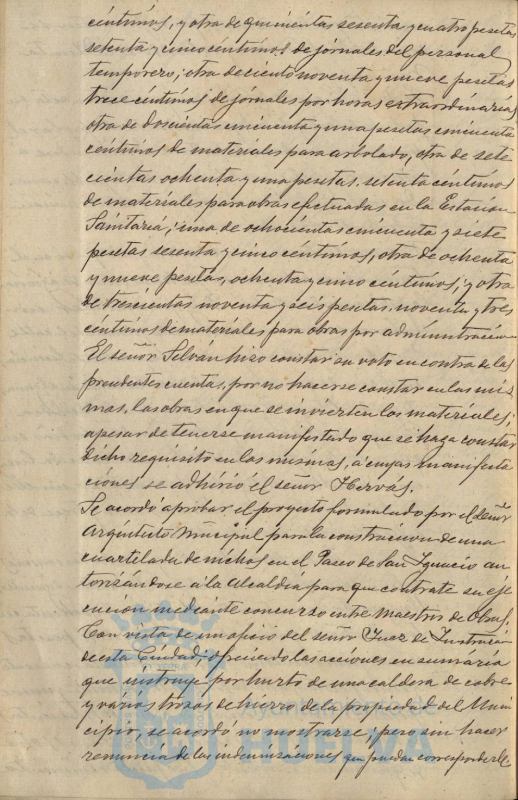 céntimos, y otra de quinientas sesenta y cuatro pesetas
setenta y cinco céntimos de jornales del personal
temporero; otra de ciento noventa y nueve pesetas
trece céntimos de jornales por horas extraordinarias
otra de doscientas cincuenta y una pesetas cincuenta
céntimos de materiales para arbolado, otra de sete
cientas ochenta y una pesetas, setenta céntimos
de materiales para obras efectuadas en la Estación
Sanitaria; una de ochocientas cincuenta y siete
pesetas sesenta y cinco céntimos, otra de ochenta
y nueve pesetas, ochenta y cinco céntimos; y otra
de trescientas noventa y seis pesetas, noventa y tres
céntimos de materiales para obras por administración
El señor Selván hizo constar su voto en contra de las
precedentes cuentas, por no hacerse constar en las mis
mas, las obras en que se invierten los materiales;
apesar de tenerse manifestado que se haga constar
dicho requisito en las mismas, a cuyas manifesta
ciones se adhirió el señor Hervás.
Se acordó aprobar el proyecto formulado por el señor
Arquitecto Municipal para la construcción de una
cuartelada de nichos en el Paseo de San Ignacio au
torizándose a la Alcaldía para que contrate su eje
cución mediante concurso entre Maestros de Obras.
Con vista de un oficio del señor Juez de Instrucción
de esta Ciudad, ofreciendo las acciones en sumario
que instruye por hurto de una caldera de cobre
y varios trozos de hierro de la propiedad del Muni
cipio, se acordó no mostrarse; pero sin hacer
renuncia de las indemnizaciones que puedan corresponderle
Ayuntamiento de
HUELVA